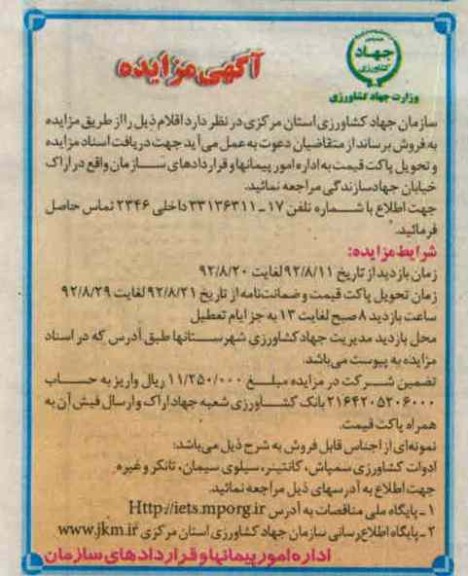 جهاد
کشاورزی
وزارت جهاد کشاورزی
آگهی مزایده
سازمان جهاد کشاورزی استان مرکزی در نظر دارد اقلام ذیل را از طریق مزایده
به فروش برساند از متقاضیان دعوت به عمل می آید جهت دریافت اسناد مزایده
و تحویل پاکت قیمت به اداره امور پیمانها و قراردادهای سازمان واقع در اراک
خیابان جهاد سازندگی مراجعه نمائید.
جهت اطلاع با شماره تلفن ۱۷ـ۳۳۱۳۶۳۱۱ داخلی ۲۳۴۶ تماس حاصل
فرمائید.
شرایط مزایده:
زمان بازدید از تاریخ ۹۲/۸/۱۱ لغایت ۹۲/۸/۲۰
زمان تحویل پاکت قیمت و ضمانت‌نامه از تاریخ ۹۲/۸/۲۱ لغایت ۹۲/۸/۲۹
ساعت بازدید ۸ صبح لغایت ۱۳ به جز ایام تعطیل
محل بازدید مدیریت جهاد کشاورزی شهرستانها طبق آدرس که در اسناد
مزایده به پیوست می‌باشد.
تضمین شرکت در مزایده مبلغ ۱۱/۲۵۰/۰۰۰ ریال واریز به حساب
۲۱۶۴۲۰۵۲۰۶۰۰۰ بانک کشاورزی شعبه جهاد اراک و ارسال فیش آن به
همراه پاکت قیمت.
نمونه‌ای از اجناس قابل فروش به شرح ذیل می‌باشد:
ادوات کشاورزی سمپاش، کانتینر، سیلوی سیمان، تانکر و غیره
جهت اطلاع به آدرسهای ذیل مراجعه نمائید.
۱ـ پایگاه ملی مناقصات به آدرس Http://iets.mporg.ir
۲ـ پایگاه اطلاع رسانی سازمان جهاد کشاورزی استان مرکزی www.jkm.ir
اداره امور پیمانها و قراردادهای سازمان